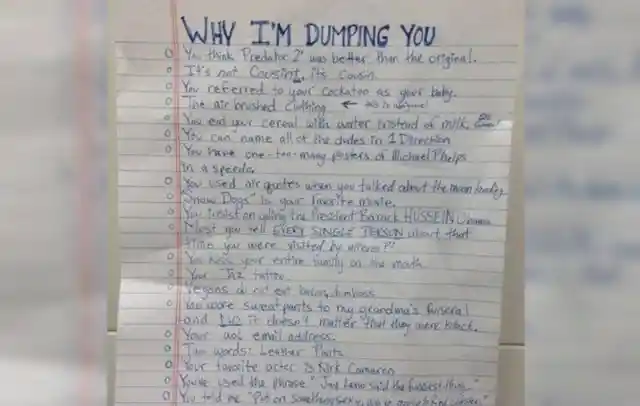 WHY I'M DUMPING YOU
You think Predator 2 was better than the original.
It's not Cousint, it's cousin.
You referred to your cockatoo as your baby.
The air brushed clothing ←
You eat your cereal with water instead of milk.
You can name all of the dudes in 1 Direction
You have one-too-many posters of Michael Phelps
in a speedo.
You used air quotes when you talked about the moon landing
"Snow Dogs" is your favorite movie.
You insist on calling the President Barack HUSSEIN Obama
Must you tell EVERY SINGLE PERSON about that
time you were visited by
You kiss your entire family on the mouth.
Your Taz tattoo.
Vegans do not eat bacon, dumbass.
You wore sweatpants to my grandma's funeral
and it doesn't matter that they were black.
Your aol email address.
Two words: Leather Pants
Your favorite actor is Kirk Cameron
You've used the phrase, "Jay Leno said the funniest thing."
You told me "Put on something sexy,